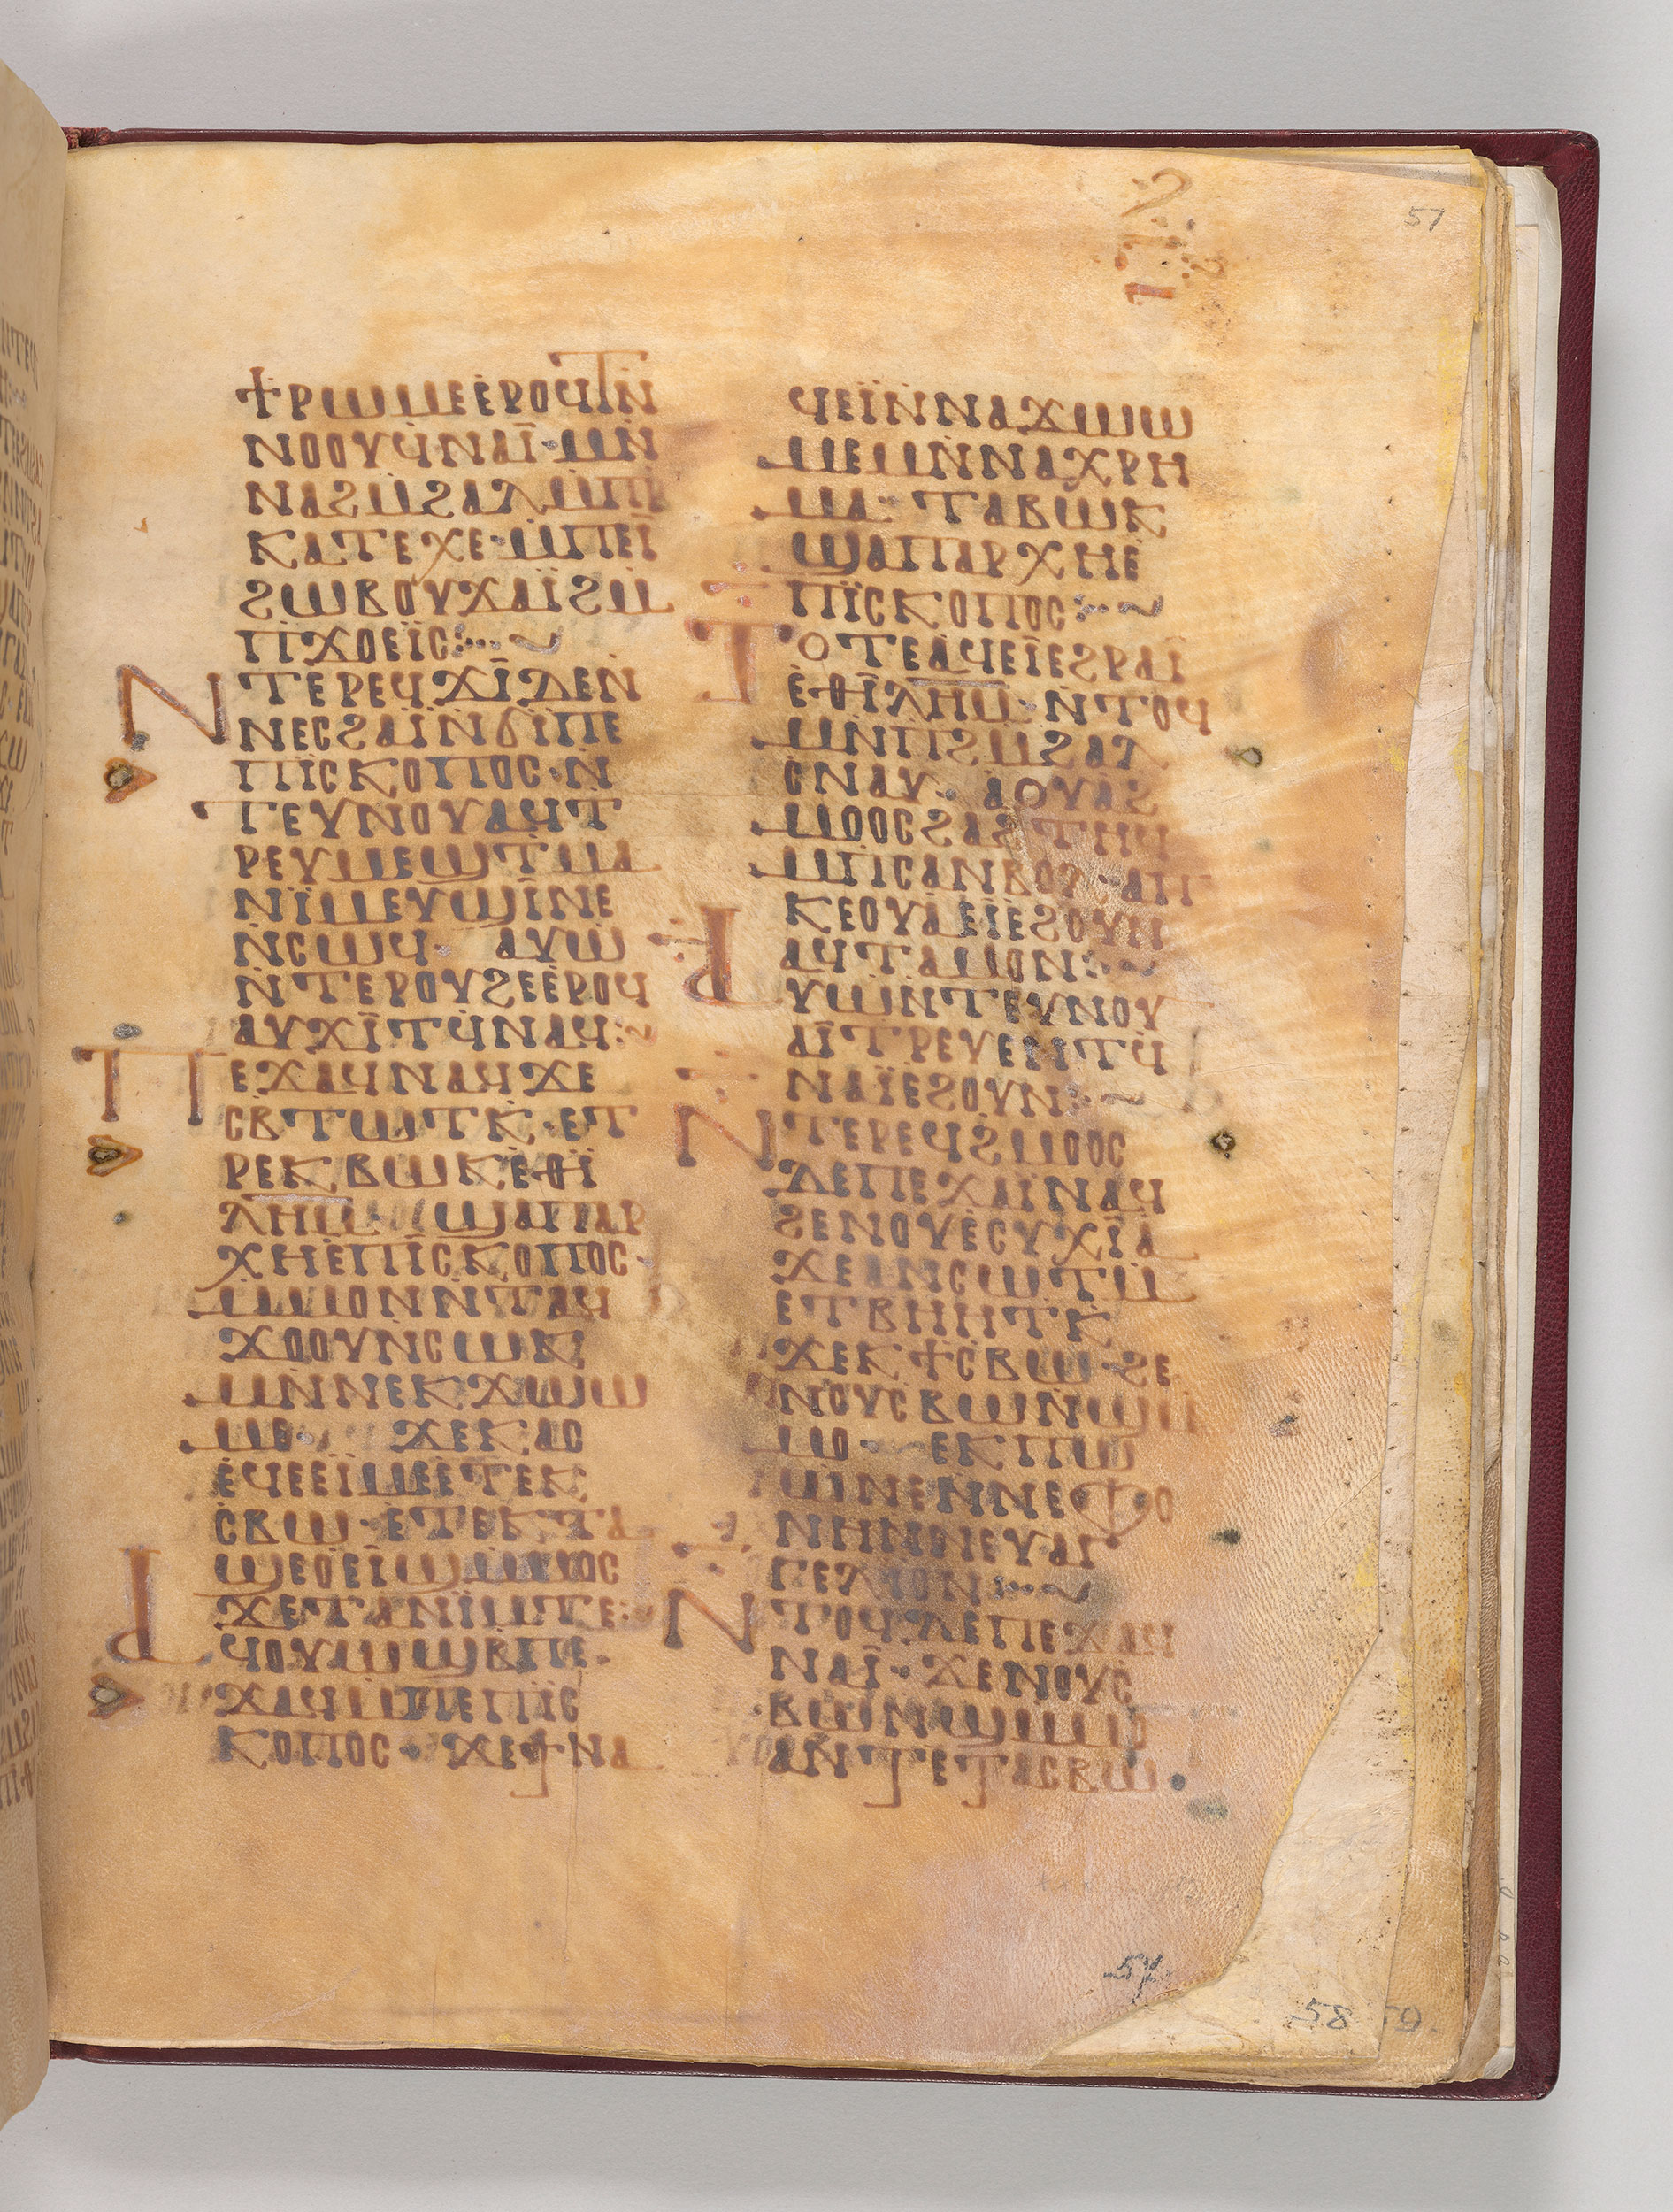 57
ϯⲣⲱⲙⲉⲉⲣⲟϥⲧⲛ
ⲛⲟⲟⲩϥⲛⲁⲓ̈·ⲙⲛ
ⲛⲁϩⲙϩⲁⲗⲙⲡⲣ
ⲕⲁⲧⲉⲭⲉ·ⲙⲡⲉⲓ
ϩⲱⲃⲟⲩϫⲁⲓ̈ϩⲙ
ⲡϫⲟⲉⲓ̈ⲥ:~
ⲛⲧⲉⲣⲉϥϫⲓⲇⲉⲛ
ⲛⲉⲥϩⲁⲓ̈ⲛϭⲓⲡⲉ
ⲡⲓⲥⲕⲟⲡⲟⲥ·ⲛ
ⲧⲉⲩⲛⲟⲩⲁϥⲧ
ⲣⲉⲩⲙⲉϣⲧⲙⲁ
ⲛⲓ̈ⲙⲉⲩϣⲓⲛⲉ
ⲛⲥⲱϥ· ⲁⲩⲱ
ⲛⲧⲉⲣⲟⲩϩⲉⲉⲣⲟϥ
ⲁⲩϫⲓⲧϥⲛⲁϥ:~
ⲡⲉϫⲁϥⲛⲁϥϫⲉ
ⲥⲃⲧⲱⲧⲕ·ⲉⲧ
ⲣⲉⲕⲃⲱⲕⲉⲑⲓ̈
ⲗⲏⲙ ϣⲁⲡⲁⲣ
ⲭⲏⲉⲡⲓⲥⲕⲟⲡⲟⲥ·
ⲙⲙⲟⲛⲛⲧⲁϥ
ϫⲟⲟⲩⲛⲥⲱⲕ
ⲙⲛⲛⲉⲕϫⲱⲱ
ⲙⲉ· ϫⲉⲕⲁⲥ
ⲉϥⲉⲉⲓⲙⲉⲉⲧⲉⲕ
ⲥⲃⲱ·ⲉⲧⲉⲕⲧⲁ
ϣⲉⲟⲉⲓϣⲙⲙⲟⲥ
ϫⲉⲧⲁⲛⲓ̈ⲙⲧⲉ:
ⲣϥⲟⲩⲱϣⲃⲡⲉ
ϫⲁϥⲙⲡⲉⲡⲓⲥ
ⲕⲟⲡⲟⲥ· ϫⲉϯⲛⲁ
ϥⲉⲓ̈ⲛⲛⲁϫⲱⲱ
ⲙⲉⲙⲛⲛⲁⲭⲣⲏ
ⲙⲁ· ⲧⲁⲃⲱⲕ
ϣⲁⲡⲁⲣⲭⲏⲉ
ⲡⲓ̈ⲥⲕⲟⲡⲟⲥ:~
ⲧⲟⲧⲉⲁϥⲉⲓⲉϩⲣⲁⲓ
ⲉⲑⲓⲗⲏⲙ·ⲛⲧⲟϥ
ⲙⲛⲡϩⲙϩⲁⲗ
ⲥⲛⲁⲩ· ⲁⲟⲩⲁϩ
ⲙⲟⲟⲥϩⲁϩⲧⲏϥ
ⲙⲡⲥⲁⲛⲃⲟⲗ·ⲁⲡ
ⲕⲉⲟⲩⲁⲉⲓⲉϩⲟⲩⲛ
ⲁϥⲧⲁⲙⲟⲛ:~
ⲣⲩⲱⲛⲧⲉⲩⲛⲟⲩ
ⲁⲓⲧⲣⲉⲩⲉⲛⲧϥ
ⲛⲁⲓ̈ⲉϩⲟⲩⲛ:~
ⲛⲧⲉⲣⲉϥϩⲙⲟⲟⲥ
ⲇⲉⲡⲉϫⲁⲓⲛⲁϥ
ϩⲉⲛⲟⲩⲉⲥⲩⲭⲓⲁ
ϫⲉⲁⲛⲥⲱⲧⲙ
ⲉⲧⲃⲏⲏⲧⲕ
ϫⲉⲕϯⲥⲃⲱ·ϩⲉ
ⲛⲥⲩⲥⲃⲱⲛϣⲙ
ⲙⲟ· ⲉⲕⲡⲱ
ⲱⲛⲉⲛⲛⲉⲫⲟ
ⲛⲏⲙⲡⲉⲩⲁⲅ
ⲅⲉⲗⲓⲟⲛ:~
ⲛⲧⲟϥⲇⲉⲡⲉϫⲁϥ
ⲛⲁⲓ· ϫⲉⲛⲟⲩⲥ
ⲃⲱⲛϣⲙⲙⲟ
ⲁⲛⲧⲉⲧⲁⲥⲃⲱ·
57
58 59